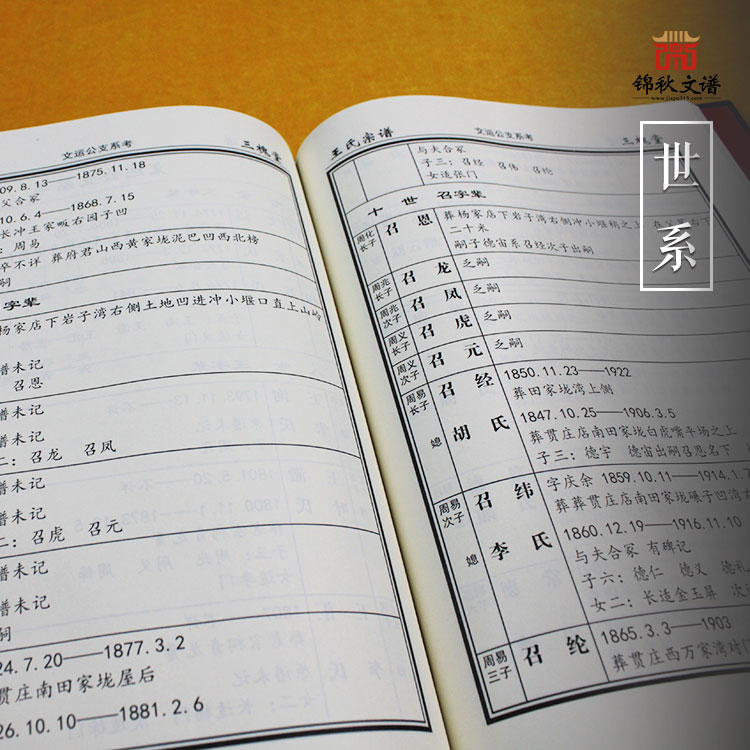 锦秋文谱
www.jiapu315.com
世系
文运公支系考 三槐堂
09.8.13——1875.11.18
父合冢
10.6.4——1868.7.15
长冲王家畈右园子凹
：周易
卒不详 葬府君山西黄家垅泥巴凹西北榜
嗣
召字辈
杨家店下岩子湾右侧土地凹进冲小堰口直上山岭
谱未记
召恩
谱未记
二：召龙 召凤
谱未记
二：召虎 召元
谱未记
谱未记
嗣
24.7.20——1877.3.2
贯庄南田家垅屋后
26.10.10——1881.2.6
王氏宗谱 文运公支系考 三槐堂
与夫合冢
子三：召经 召伟 召纶
女适张门
十世 召字辈
周化长子 召恩 葬杨家店下岩子湾右侧冲小堰稍之上
二十米
嗣子德宙系召经次子出嗣
周兆长子 召龙 乏嗣
周兆次子 召凤 乏嗣
周义长子 召虎 乏嗣
周义次子 召元 乏嗣
周易长子 召经 1850.11.23——1922
葬田家垅湾上侧
媳 胡氏 1847.10.25——1906.3.5
葬贯庄店南田家垅白虎嘴平场之上
子三：德宇 德宙出嗣召恩名下
周易次子 召纬 字庆余 1859.10.11——1914.1.
葬贯庄店南田家垅碾子凹湾右
媳 李氏 1860.12.19——1916.11.10
与夫合冢 有碑记
子六：德仁 德义 德礼
女二：长适金玉屏 次
周易三子 召纶 1865.3.3——1903
葬贯庄西万家湾对门